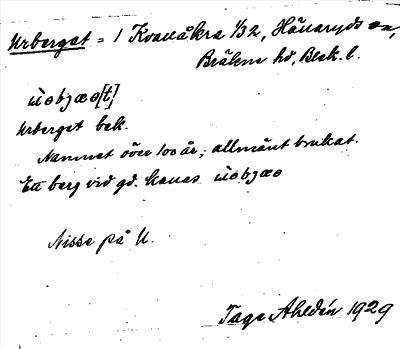 Urberget = 1 Kvarnåkra 1/32, Hönaryds sn,
Bräkne hd, Blek. l.
ɯ̀ɞbjæɞ[t]
Urberget bek.
Namnet över 100 år; allmänt brukat.
Ett berg vid gd. kallas ɯ̀ɞbjæɞ
Nisse på U.
Tage Ahldén 1929